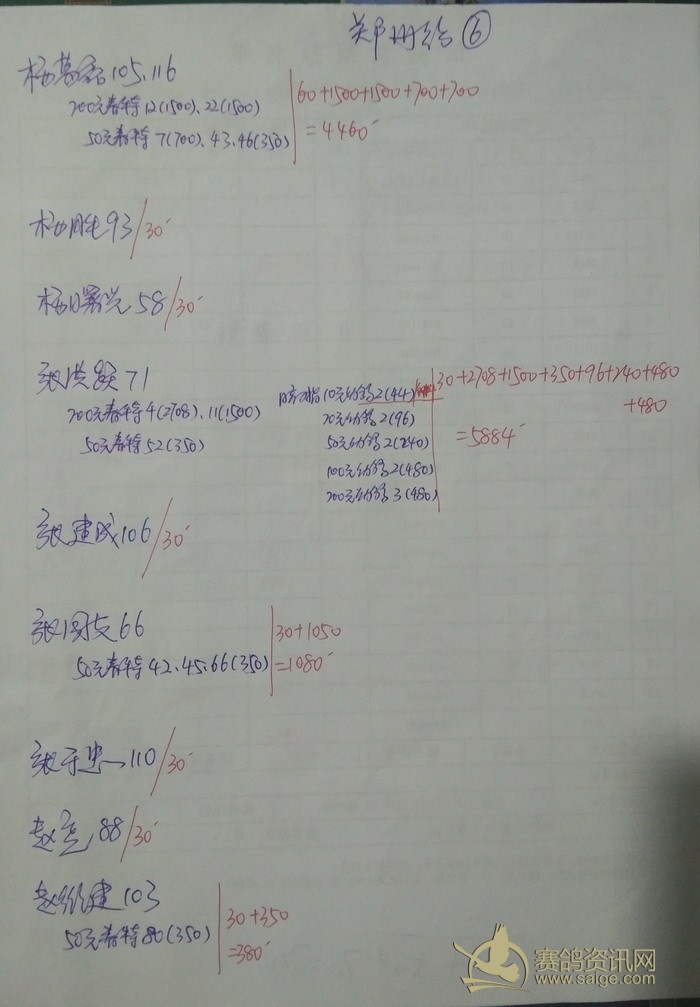 郑州给⑥
杨慕磊105.116
200元春特12(1500)、22(1500)
50元春特7(700)、43.46(350)
60+1500+1500+700+700
=4460
杨胜93/30
杨曙光58/30
张洪跃71
200元春特4(2708)、11(1500)
50元春特52(350)
10元 2(44)
20元 2(96)
50元 2(240)
100元 2(480)
200元 3(480)
30+2708+1500+350+96+240+480
+480
=5884
张建成106/30
张国文66
50元春特42、45、66(350)
30+1050
=1080
张于忠110/30
赵亮88/30
赵维建103
50元春特80(350)
30+350
=380
赛鸽资讯网
www.saige.com